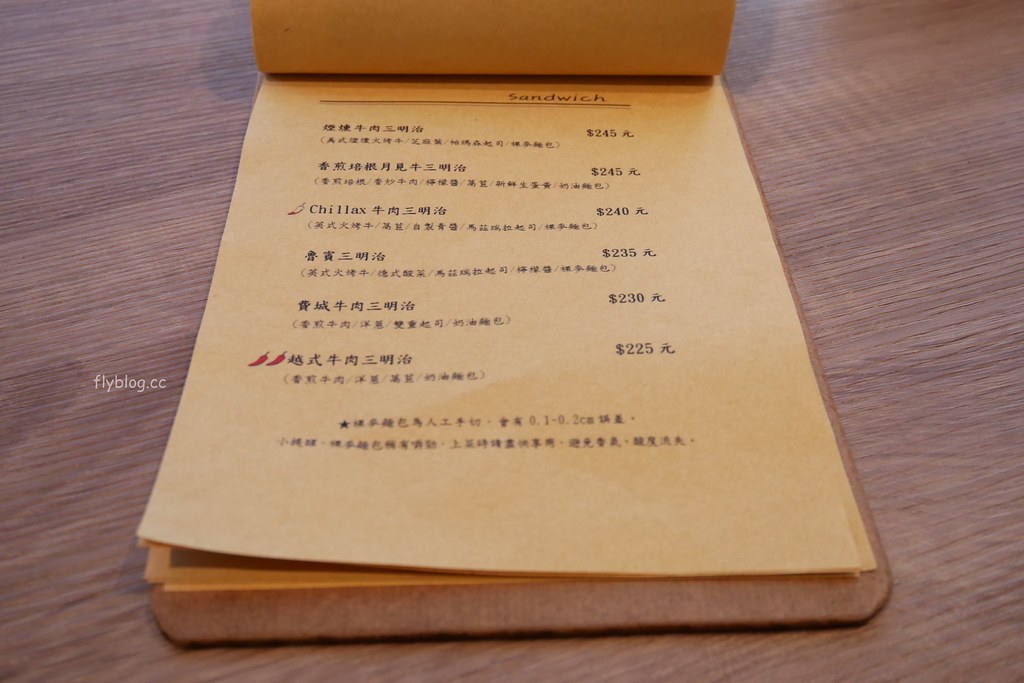 Sandwich
煙燻牛肉三明治 $245 元
(美式煙燻火烤牛/芝麻葉/帕瑪森起司/裸麥麵包)
香煎培根月見牛三明治 $245 元
(香煎培根/香炒牛肉/檸檬醬/萵苣/新鮮生蛋黃/奶油麵包)
Chillax 牛肉三明治 $240 元
(英式火烤牛/萵苣/自製青醬/馬茲瑞拉起司/裸麥麵包)
魯賓三明治 $235 元
(英式火烤牛/德式酸菜/馬茲瑞拉起司/檸檬醬/裸麥麵包)
費城牛肉三明治 $230 元
(香煎牛肉/洋蔥/雙重起司/奶油麵包)
越式牛肉三明治 $225 元
(香煎牛肉/洋蔥/萵苣/奶油麵包)
★裸麥麵包為人工手切，會有 0.1-0.2cm 誤差。
小提醒、裸麥麵包稍有嚼勁，上菜時請盡快享用，避免香氣、酸度流失。
flyblog.cc